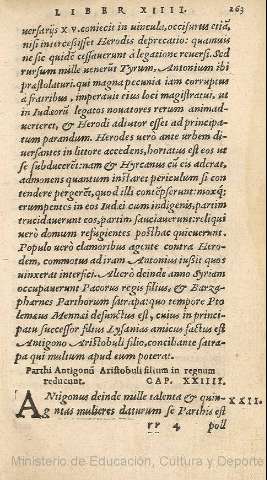 LIBER XIIII. 263
uersarijs x v. coniecit in uincula, occisurus etiã,
nisi intercessisset Herodis deprecatio: quamuis
ne sic quidē cessauerunt à legatione reuersi. Sed
rursum mille uenerūt Tyrum, Antonium ibi
præstolaturi. qui magna pecunia iam corruptus
a fratribus, imperauit eius loci magistratui, ut
in Iudæorū legatos nouatores rerum animad-
uerteret, & Herodi adiutor esset ad principa-
tum parandum. Herodes uerò ante urbem di-
uersantes in littore accedens, hortatus est eos ut
se subducerēt: nam & Hyrcanus cū eis aderat,
admonens quantum instaret periculum si con
tendere pergerēt, quod illi contēpserunt: moxq́;
erumpentes in eos Iudæi cum indigenis, partim
trucidauerunt eos, partim sauciauerunt: reliqui
uerò domum refugientes posthac quieuerunt.
Populo uerò clamoribus agente contra Hero-
dem, commotus ad iram Antonius iußit quos
uinxerat interfici. Alterò deinde anno Syriam
occupauerunt Pacorus regis filius, & Barza-
pharnes Parthorum satrapa: quo tempore Pto
lemæus Mennæi defunctus est, cuius in princi-
patu successor filius Lysanias amicus factus est
Antigono Aristobuli filio, conciliante satra-
pa qui multum apud eum poterat.
Parthi Antigonū Aristobuli filium in regnum
reducunt. CAP. XXIIII.
ANtigonus deinde mille talenta & quin- XXII.
gentas mulieres daturum se Parthis est
rr 4 poll
Ministerio de Educación, Cultura y Deporte